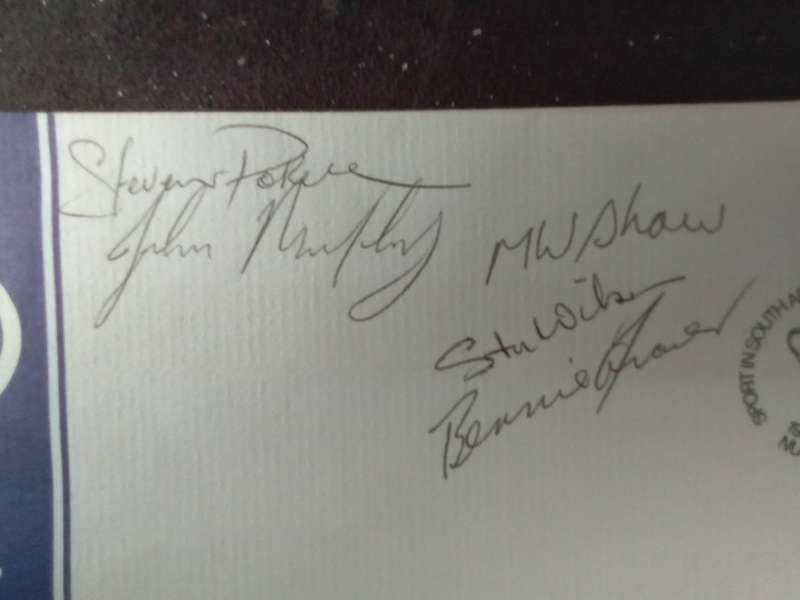 Steven Pokere
John Murphy
MW Shaw
Stu Wilson
Bernie Fraser
SPORT IN SOUTH